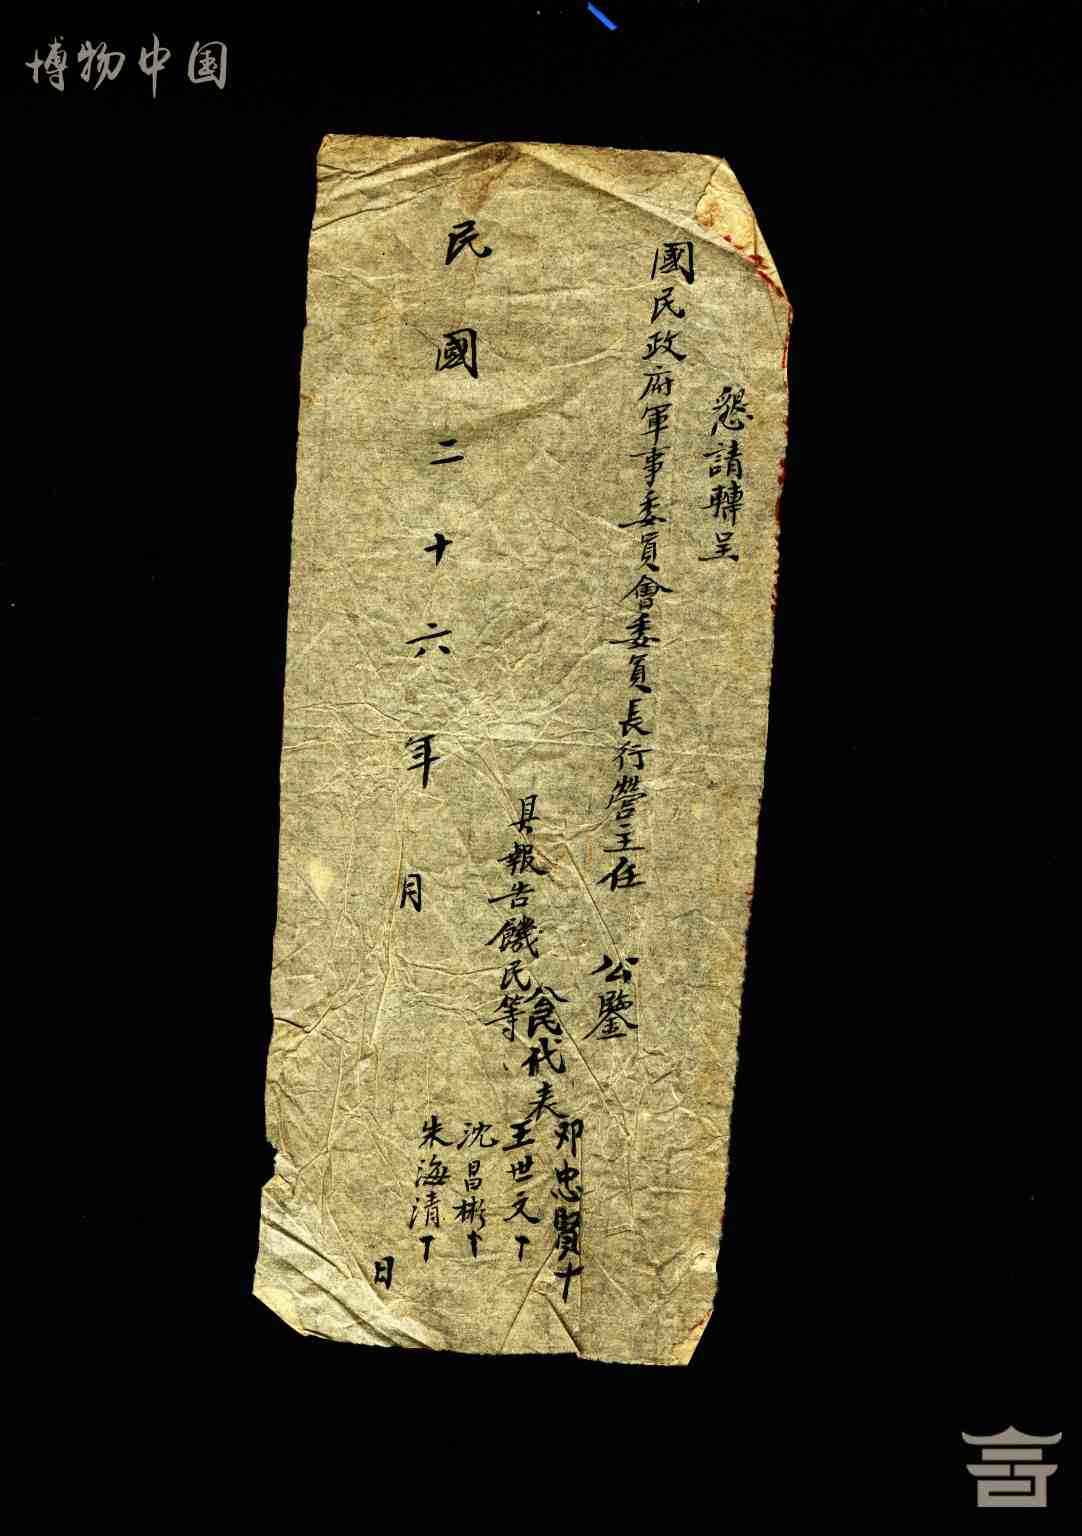 博物中国
懇請轉呈
國民政府軍事委員會委員長行營主任 公鑒
具報告饑民等
代表
邓忠賢十
王世文十
沈昌彬十
朱海清十
民國二十六年 月 日